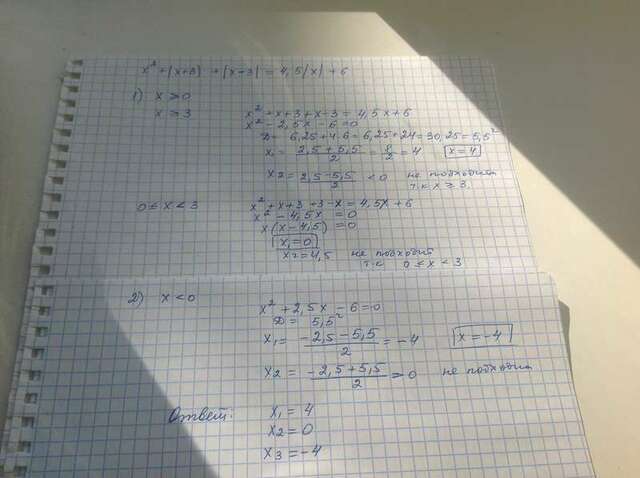 x² + |x+3| + |x-3| = 4,5|x| + 6
1) x ≥ 0
x ≥ 3 x² + x + 3 + x - 3 = 4,5x + 6
x² - 2,5x - 6 = 0
D = 6,25 + 4·6 = 6,25 + 24 = 30,25 = 5,5²
x₁ = (2,5 + 5,5)/2 = 8/2 = 4 x = 4
x₂ = (2,5 - 5,5)/2 < 0 не подходит
т.к x ≥ 3
0 ≤ x < 3 x² + x + 3 + 3 - x = 4,5x + 6
x² - 4,5x = 0
x(x - 4,5) = 0
x₁ = 0
x₂ = 4,5 не подходит
т.к 0 ≤ x < 3
2) x < 0 x² + 2,5x - 6 = 0
D = 5,5²
x₁ = (-2,5 - 5,5)/2 = -4 x = -4
x₂ = (-2,5 + 5,5)/2 > 0 не подходит
Ответ: x₁ = 4
x₂ = 0
x₃ = -4